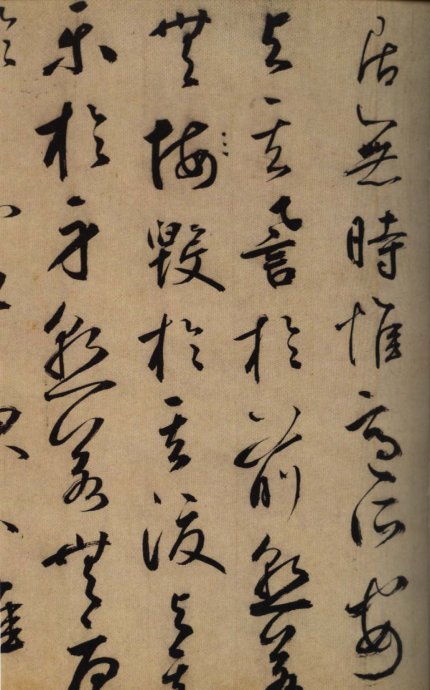 居無時惟適所安
與其譽於前孰若
無悔毀於其後與其
樂於身孰若無憂